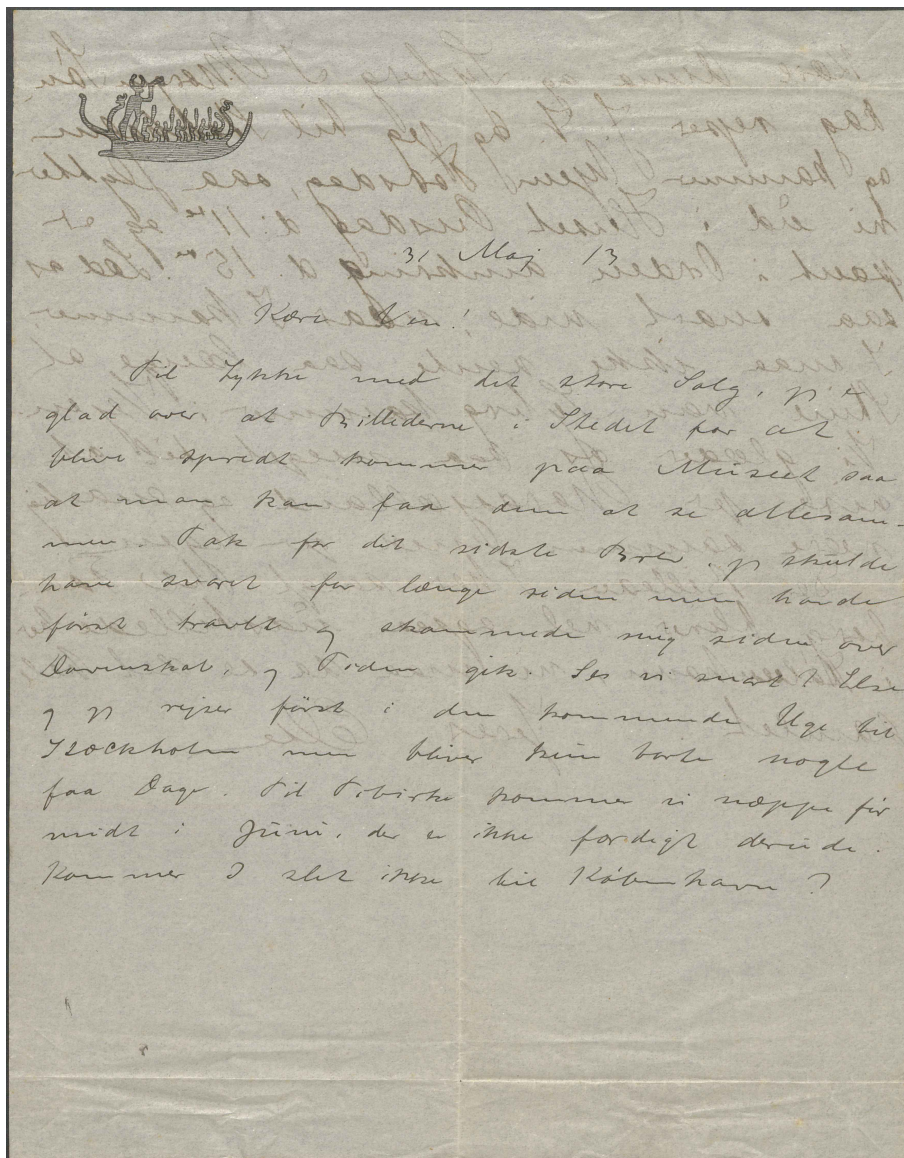 31 Maj 13
Kære Ven!
Til Lykke med det store Salg, jeg er
glad over at Billederne i Stedet for at
blive spredt kommer paa Museet saa
at man kan faa dem at se allesam-
men. Tak for dit sidste Brev, jeg skulde
have svaret for længe siden men havde
først travlt og skammede mig siden over
Dovenskab, og Tiden gik. Ses vi snart? Else
og jeg rejser først i den kommende Uge til
Stockholm men bliver kun borte nogle
faa Dage. Til Tibirke kommer vi næppe før
midt i Juni, der er ikke færdigt derude.
Kommer I slet ikke til København?